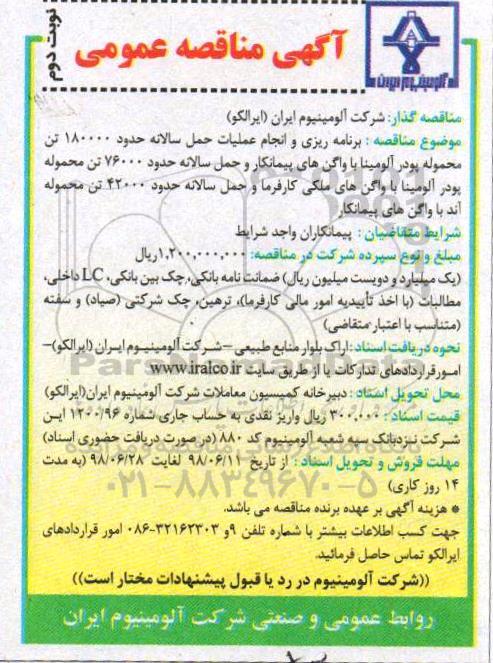 نوبت دوم
آلومینیوم ایران
آگهی مناقصه عمومی
مناقصه گذار: شرکت آلومینیوم ایران (ایرالکو)
موضوع مناقصه : برنامه ریزی و انجام عملیات حمل سالانه حدود ۱۸۰۰۰۰ تن
محموله پودر آلومینا با واگن های پیمانکار و حمل سالانه حدود ۷۶۰۰۰ تن محموله
پودر آلومینا با واگن های ملکی کارفرما و حمل سالانه حدود ۴۲۰۰۰ تن محموله
آند با واگن های پیمانکار
شرایط متقاضیان : پیمانکاران واجد شرایط
مبلغ و نوع سپرده شرکت در مناقصه: ۱,۲۰۰,۰۰۰,۰۰۰ریال
(یک میلیارد و دویست میلیون ریال) ضمانت نامه بانکی، چک بین بانکی، LC داخلی،
مطالبات (با اخذ تأییدیه امور مالی کارفرما)، ترهین، چک شرکتی (صیاد) و سفته
(متناسب با اعتبار متقاضی)
نحوه دریافت اسناد: اراک بلوار منابع طبیعی –شرکت آلومینیوم ایران (ایرالکو)–
امور قراردادهای تدارکات یا از طریق سایت www.iralco.ir
محل تحویل اسناد : دبیرخانه کمیسیون معاملات شرکت آلومینیوم ایران(ایرالکو)
قیمت اسناد : ۳۰۰,۰۰۰ ریال واریز نقدی به حساب جاری شماره ۱۲۰۰/۹۶ این
شرکت نزد بانک سپه شعبه آلومینیوم کد ۸۸۰ (در صورت دریافت حضوری اسناد)
مهلت فروش و تحویل اسناد : از تاریخ ۹۸/۰۶/۱۱ لغایت ۹۸/۰۶/۲۸ (به مدت
۱۴ روز کاری)
* هزینه آگهی بر عهده برنده مناقصه می باشد.
جهت کسب اطلاعات بیشتر با شماره تلفن ۹و ۳۲۱۶۲۳۰۳-۰۸۶ امور قراردادهای
ایرالکو تماس حاصل فرمائید.
((شرکت آلومینیوم در رد یا قبول پیشنهادات مختار است))
روابط عمومی و صنعتی شرکت آلومینیوم ایران
ParsNamadData
۰۲۱-۸۸۳۴۹۶۷۰-۵